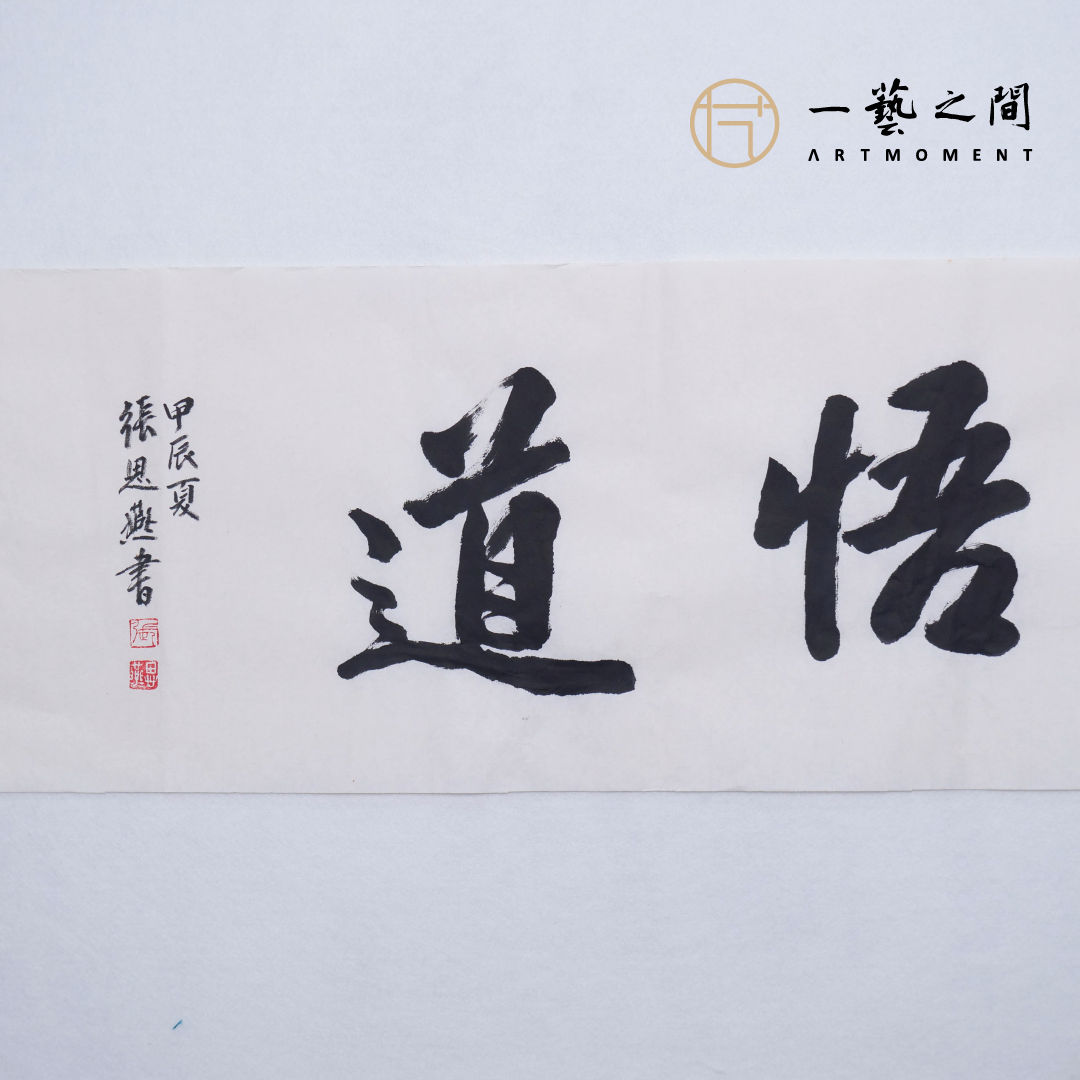 一藝之間
ARTMOMENT
悟道
甲辰夏
張思燕書
張
思燕